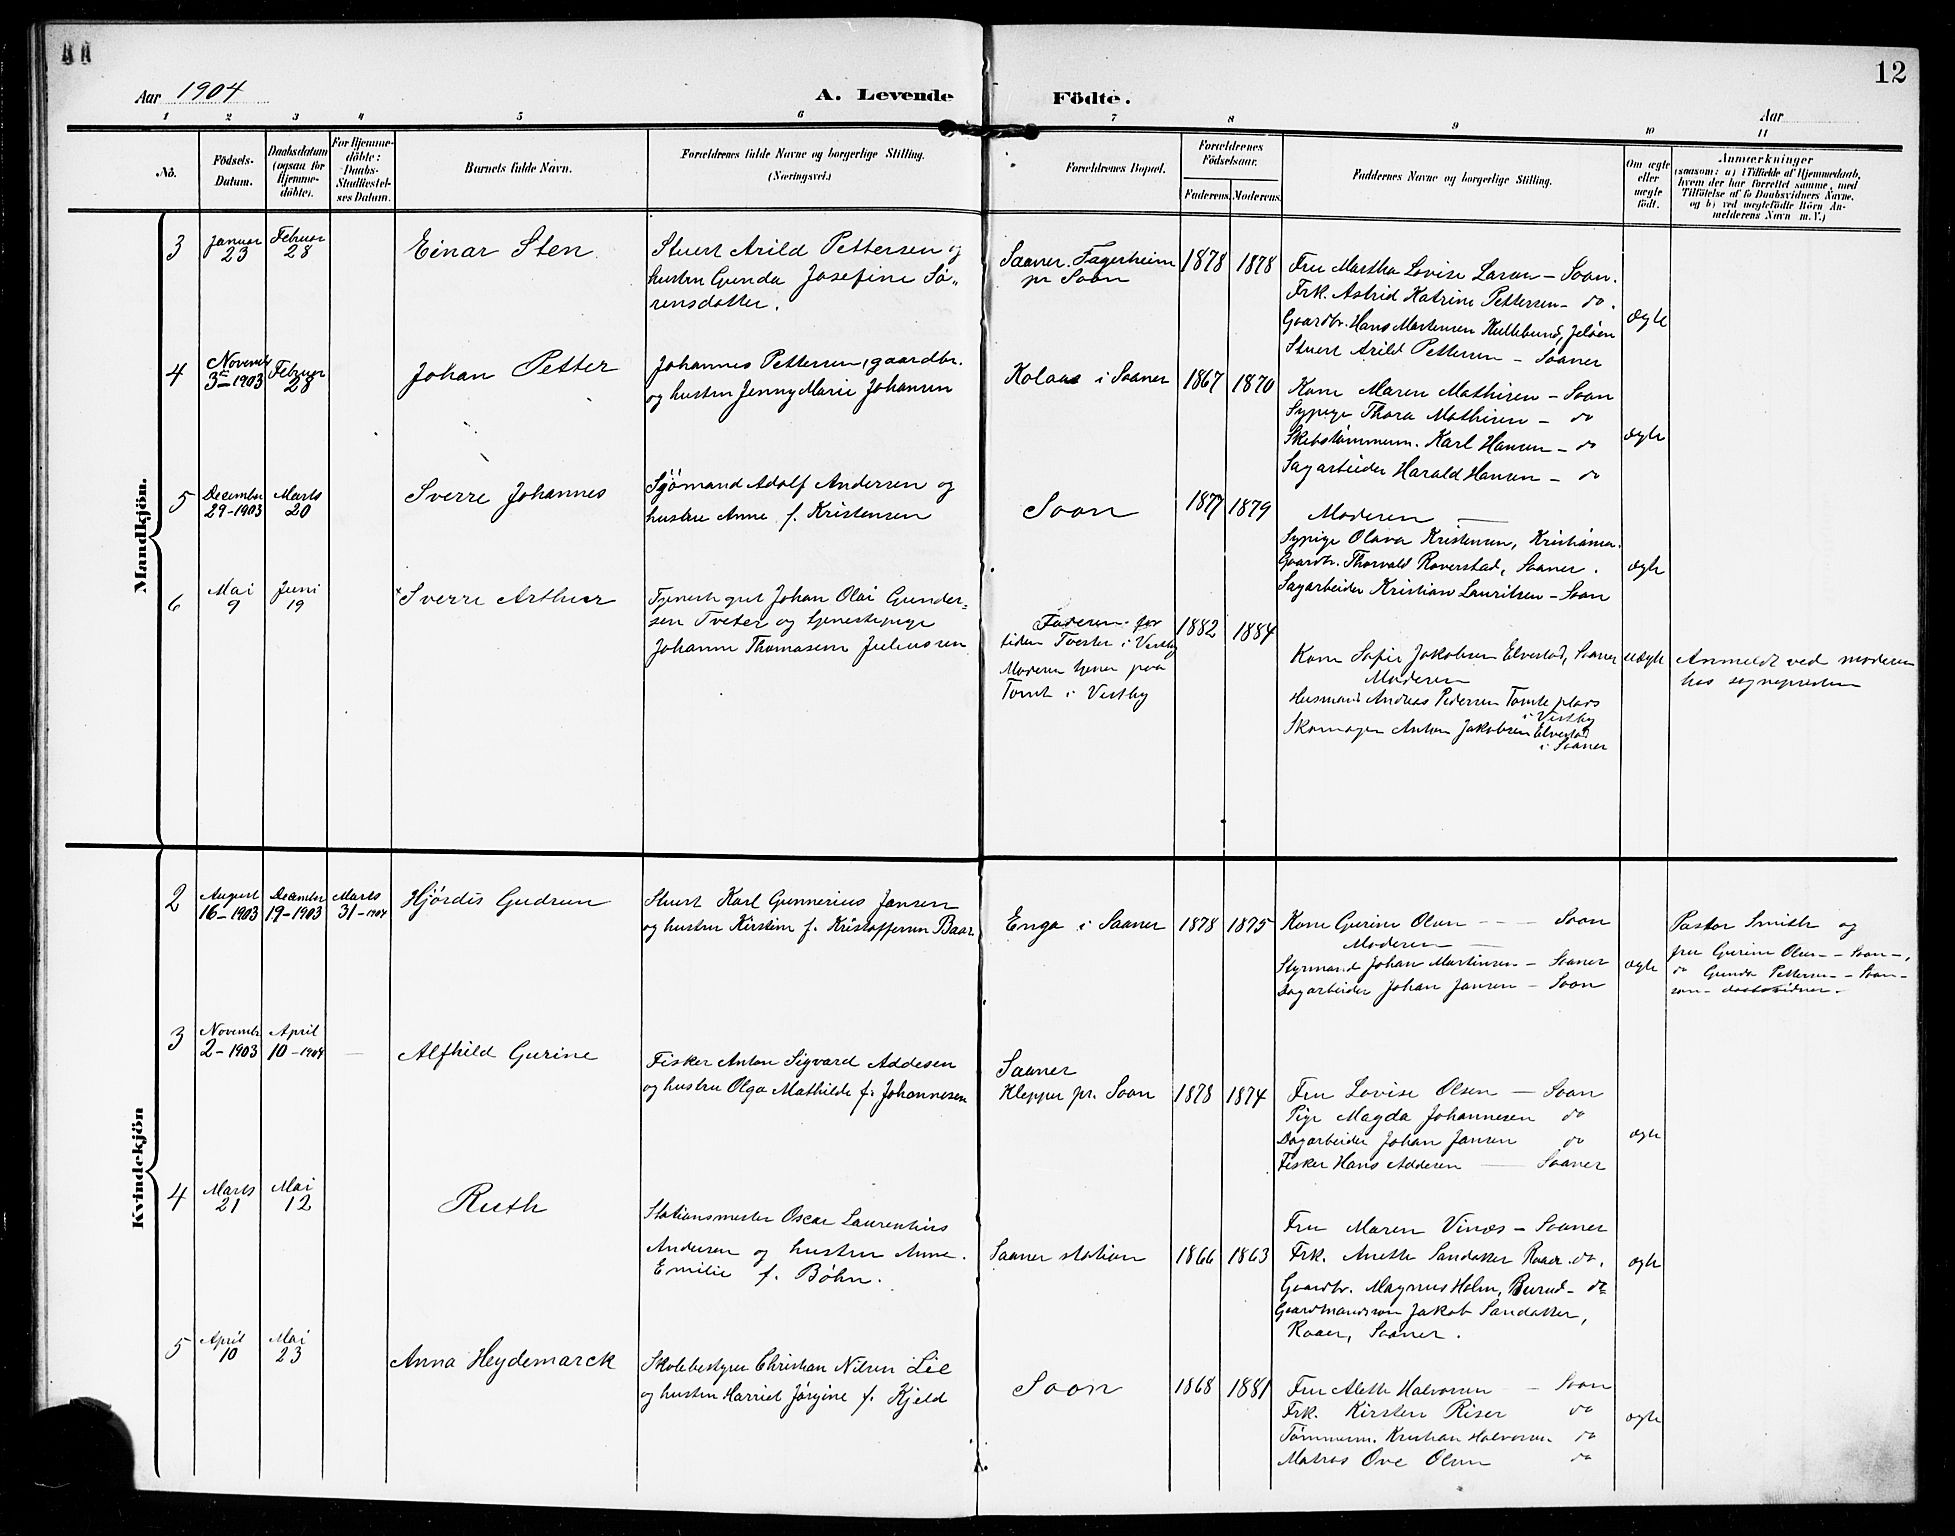 12
Aar 1904
A. Levende Födte.
Aar
1 2 3 4 5 6 7 8 9 10 11
No.
Födsels-
Datum.
Daabsdatum
(ogsaa for
Hjemme-
döbte).
For Hjemme-
döbte:
Daabs-
Stadfæstel-
ses Datum.
Barnets fulde Navn.
Forældrenes fulde Navne og borgerlige Stilling.
(Næringsvei.)
Forældrenes Bopæl.
Forældrenes
Födselsaar.
Faderens. Moderens.
Faddernes Navne og borgerlige Stilling.
Om ægte
eller
uægte
födt.
Anmærkninger
(saasom: a) i Tilfælde af Hjemmedaab,
hvem der har forrettet samme, med
Tilföielse af to Daabsvidners Navne,
og b) ved uægtefödte Börn An-
melderens Navn m. V.)
Mandkjön.
3
Januar
23
Februar
28
Einar Sten
Stuert Arild Pettersen og
hustru Gunda Josefine Sø-
rensdatter.
Saaner. Fagerheim
pr Soon
1878 1878
Fru Martha Lovise Larsen – Soon.
Frk. Astrid Katrine Pettersen – do.
Gaardbr. Hans Martinsen Kullebund, Jeløen
Stuert Arild Pettersen – Saaner
ægte
4
November
3die 1903
Februar
28
Johan Petter
Johannes Pettersen, gaardbr.
og hustru Jenny Marie Johansen
Kolaas i Saaner
1867 1870
Kone Maren Mathisen – Soon
Sypige Thora Mathisen – do
Skibstømmerm. Karl Hansen – do
Sagarbeider Harald Hansen – do
ægte
5
December
29-1903
Marts
20
Sverre Johannes
Sjømand Adolf Andersen og
hustru Anne f. Kristensen
Soon
1877 1879
Moderen —
Sypige Olava Kristensen, Kristiania.
Gaardbr. Thorvald Raverstad, Saaner.
Sagarbeider Kristian Lauritsen – Soon
ægte
6
Mai
9
Juni
19
Sverre Arthur
Tjenestegut Johan Olai Gunder-
sen Tveter og tjenestepige
Johanne Thomasine Juliussen
Faderen for
tiden Tveter i Vestby
Moderen tjener paa
Tomt i Vestby
1882 1884
Kone Sofie Jakobsen Elvestad, Saaner
Moderen
Husmand Andreas Pedersen Tomteplads
i Vestby
Skomager Anton Jakobsen Elvestad
i Saaner
uægte
Anmeldt ved moderen
hos sognepresten
Kvindekjön
2
August
16-1903
December
19-1903
Marts
31-1904
Hjørdis Gudrun
Stuert Karl Gunnerius Jansen
og hustru Kirstine f. Kristoffersen Baar.
Enga i Saaner
1878 1875
Kone Gurine Olsen – – – Soon
Moderen —
Styrmand Johan Martinsen – Saaner
Dagarbeider Johan Jansen – Soon
ægte
Pastor Smith og
fru Gurine Olsen – Soon –,
do Gunda Pettersen – Soon –
som daabsvidner.
3
November
2-1903
April
10-1904
—
Alfhild Gurine
Fisker Anton Sigvard Addesen
og hustru Olga Mathilde f. Johannesen
Saaner
Klepper pr. Soon
1878 1874
Fru Lovise Olsen – Soon
Pige Magda Johannesen do
Dagarbeider Johan Jansen do
Fisker Hans Addesen — Saaner
ægte
4
Marts
21
Mai
12
Ruth
Stationsmester Oscar Laurentius
Andersen og hustru Anne
Emilie f. Bøhn.
Saaner station
1866 1863
Fru Maren Vinæs – Saaner
Frk. Anette Sandaker Raaer do.
Gaardbr. Magnus Holm, Burud – do
Gaardmandssøn Jakob Sandaker,
Raaer, Saaner.
ægte
5
April
10
Mai
23
Anna Heydemarck
Skolebestyrer Christian Nilsen Lie
og hustru Harriet Jørgine f. Kjeld
Soon
1868 1881
Fru Alette Halvorsen – Soon
Frk. Kirsten Riser do
Tømmerm. Kristian Halvorsen do
Matros Ove Olsen do
ægte